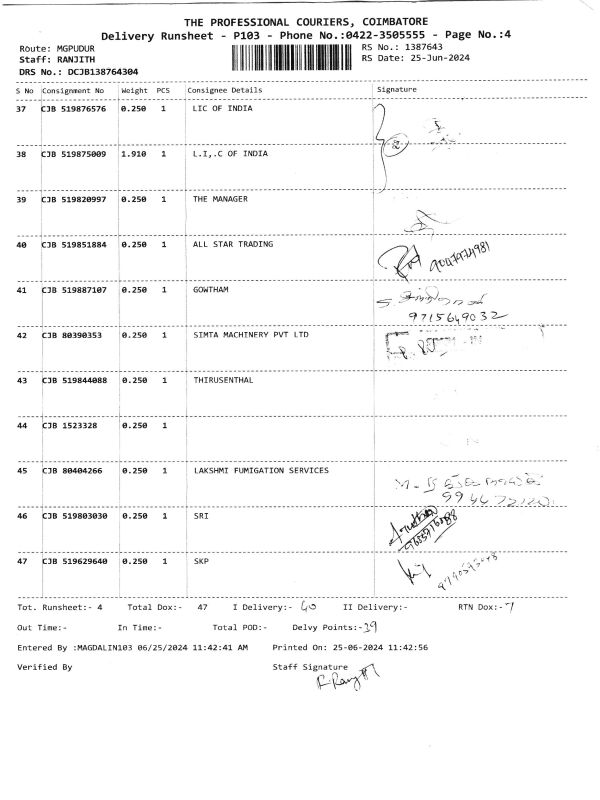 THE PROFESSIONAL COURIERS, COIMBATORE
Delivery Runsheet - P103 - Phone No.:0422-3505555 - Page No.:4
Route: MGPUDUR RS No.: 1387643
Staff: RANJITH RS Date: 25-Jun-2024
DRS No.: DCJB138764304
S No Consignment No Weight PCS Consignee Details Signature
37 CJB 519876576 0.250 1 LIC OF INDIA
2
38 CJB 519875009 1.910 1 L.I,.C OF INDIA
39 CJB 519820997 0.250 1 THE MANAGER
40 CJB 519851884 0.250 1 ALL STAR TRADING
41 CJB 519887107 0.250 1 GOWTHAM
9715649032
42 CJB 80390353 0.250 1 SIMTA MACHINERY PVT LTD
43 CJB 519844088 0.250 1 THIRUSENTHAL
44 CJB 1523328 0.250 1
45 CJB 80404266 0.250 1 LAKSHMI FUMIGATION SERVICES
46 CJB 519803030 0.250 1 SRI
47 CJB 519629640 0.250 1 SKP
Tot. Runsheet:- 4 Total Dox:- 47 I Delivery:- 40 II Delivery:- RTN Dox:- 7
Out Time:- In Time:- Total POD:- Delvy Points:- 39
Entered By :MAGDALIN103 06/25/2024 11:42:41 AM Printed On: 25-06-2024 11:42:56
Verified By Staff Signature